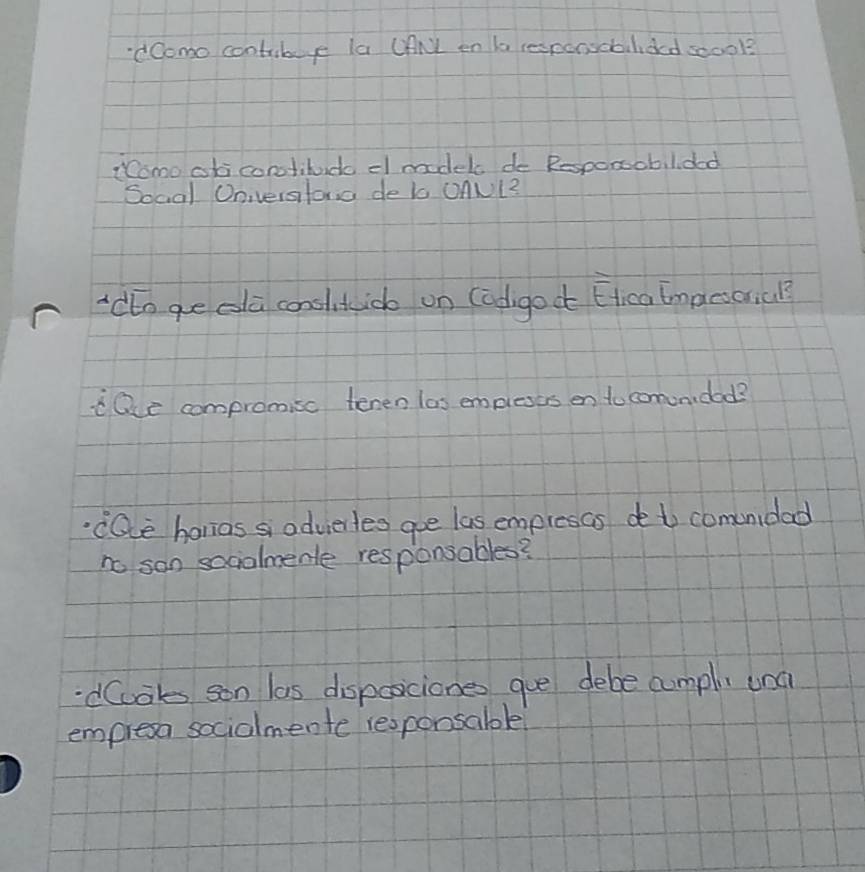 ·¿Como contribuye la UANL en la responsabilidad social?
¿Como está constituido el modelo de Responsabilidad
Social Universitaria de la UANL?
·¿En que está constituido un Código de Ética Empresarial?
¿Qué compromiso tenen las empresas en tu comunidad?
·¿Qué harías si adviertes que las empresas de tu comunidad
no son socialmente responsables?
·¿Cuáles son las disposiciones que debe cumplir una
empresa socialmente responsable